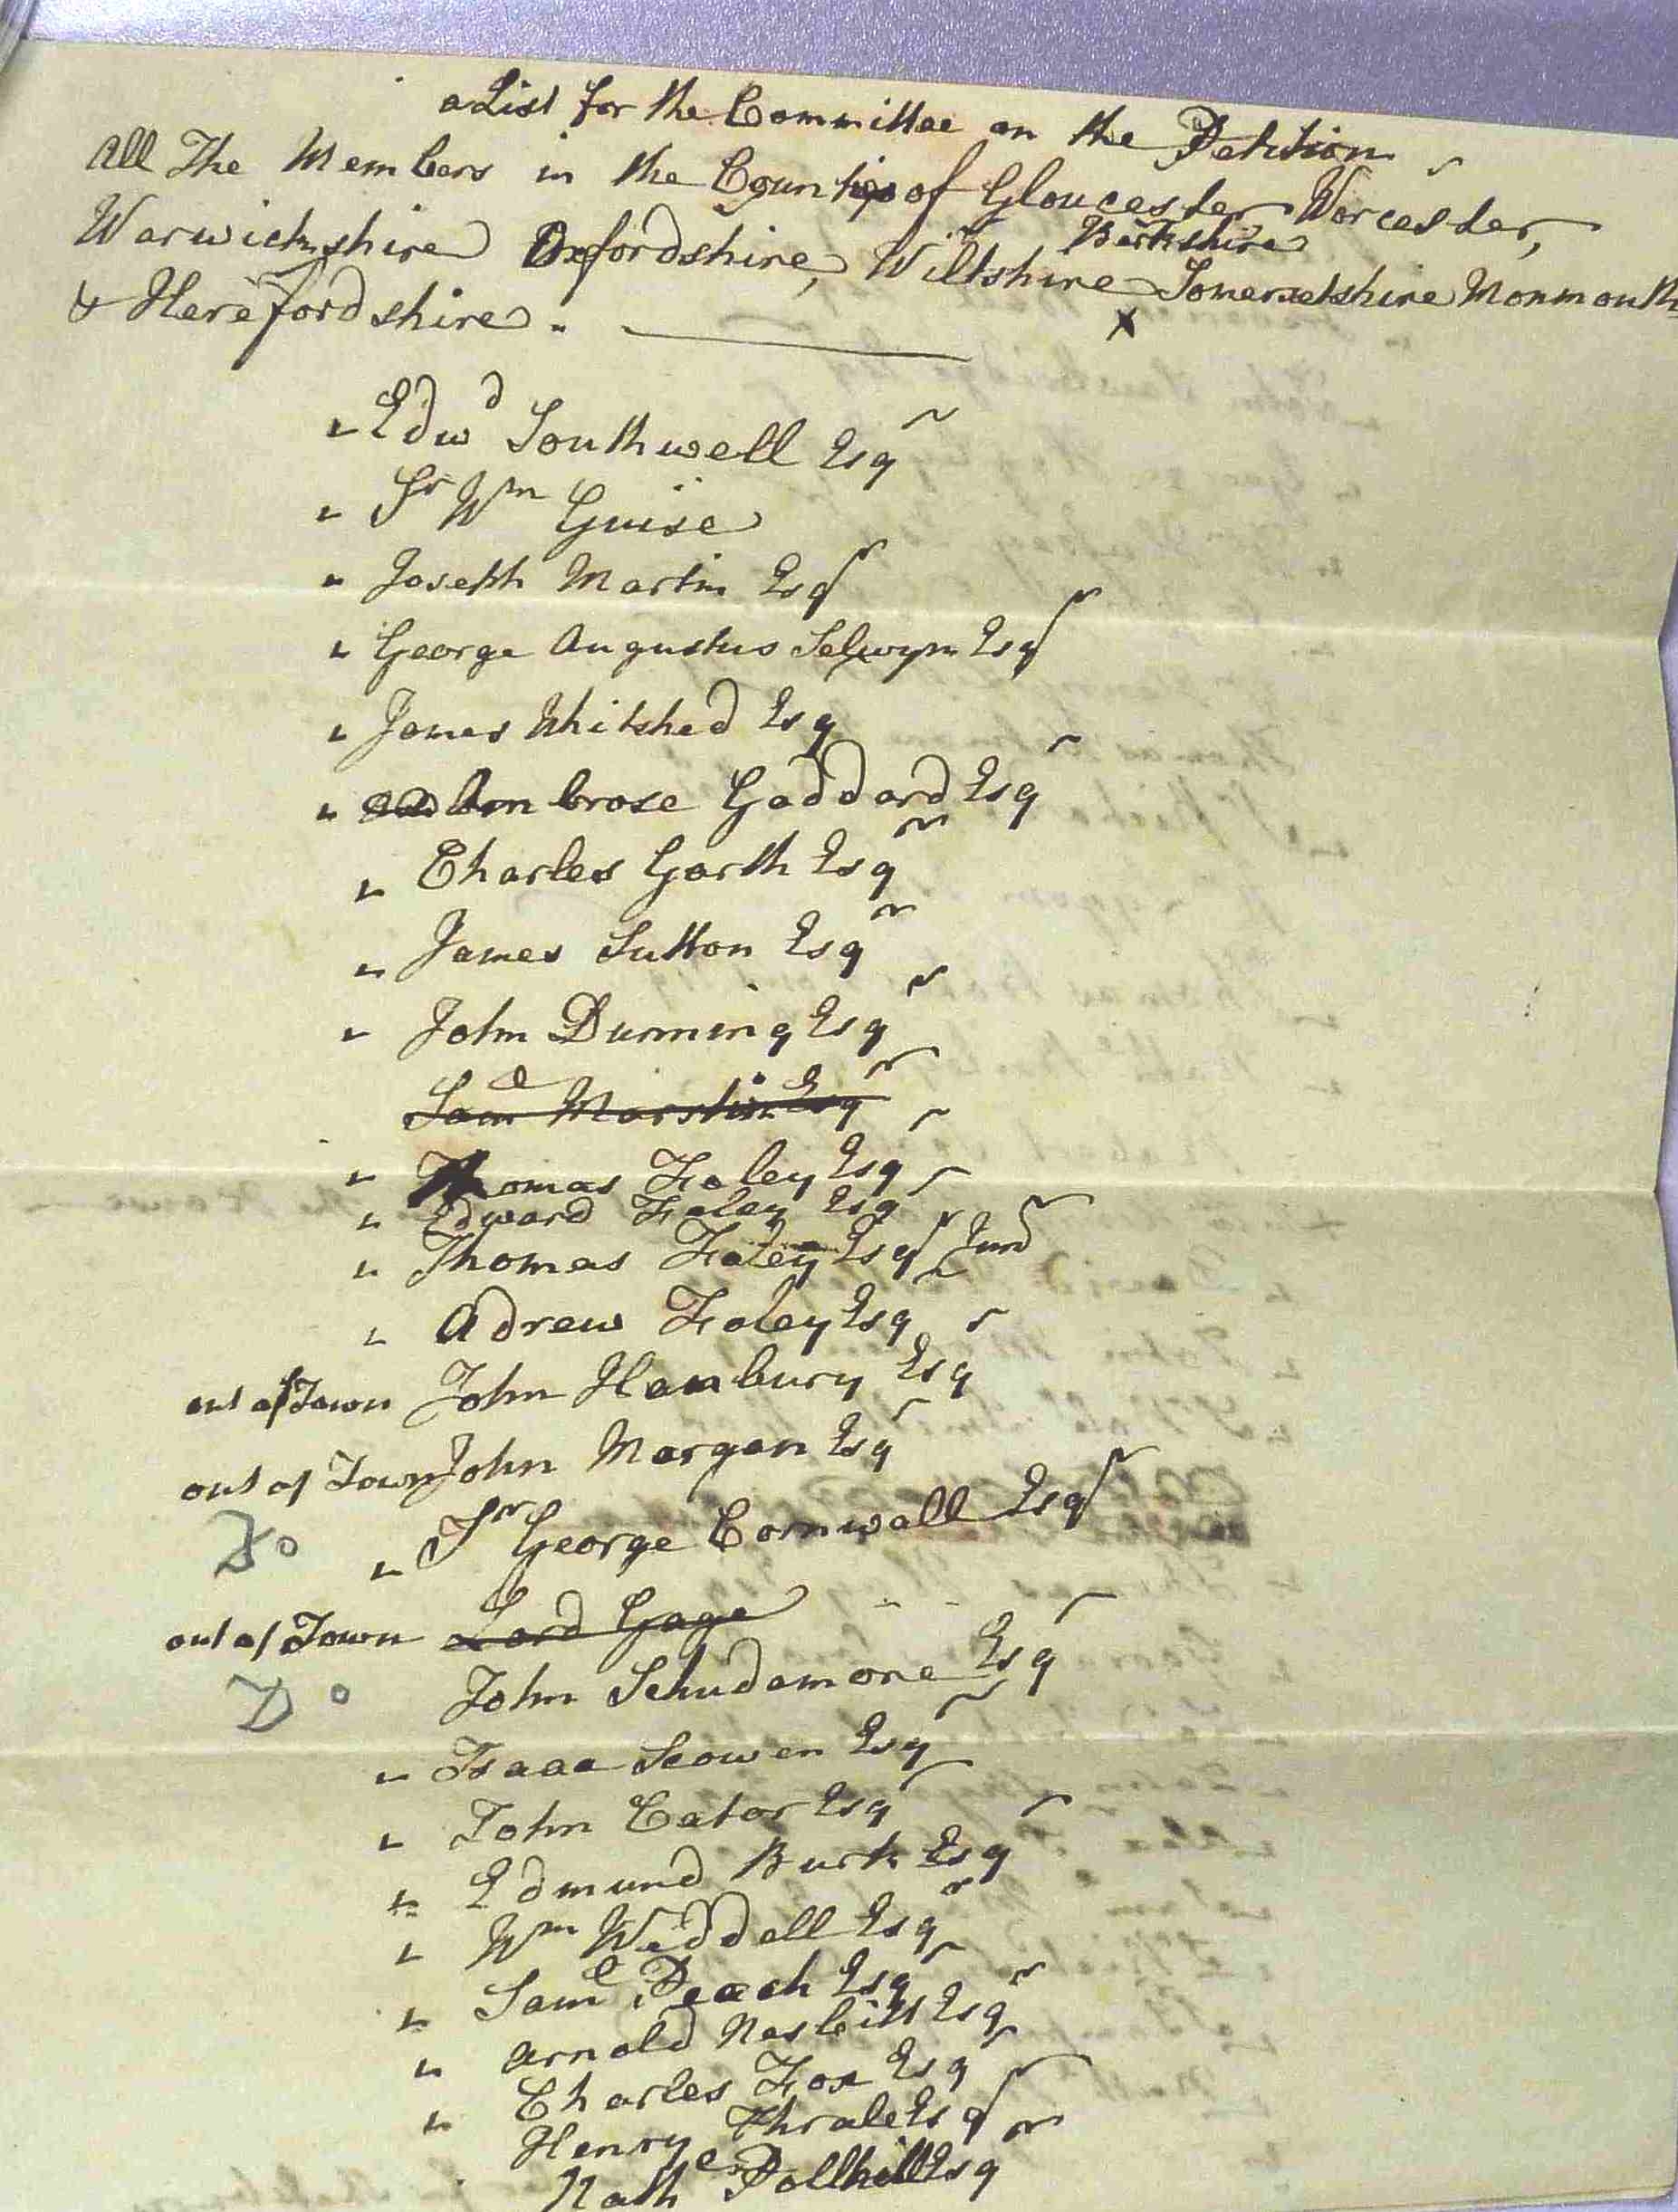 a List for the Committee on the Petition
All The Members in the Counties of Gloucester Worcester,
Berkshire
Warwickshire Oxfordshire, Wiltshire Somersetshire Monmouth
& Herefordshire.
x
Edwd Southwell Esqr
Sr Wm Guise
Joseph Martin Esqr
George Augustus Selwyn Esqr
James Whitshed Esq
Ambrose Goddard Esqr
Charles Garth Esqr
James Sutton Esqr
John Dunning Esqr
Saml Marstin Esqr
Thomas Foley Esqr
Edward Foley Esqr
Thomas Foley Esqr Junr
Adrew Foley Esqr
out of Town John Hanbury Esqr
out of Town John Morgan Esqr
Do Sr George Cornwall Esqr
out of Town Lord Gage
Do John Schudamore Esqr
Isaac Scowen Esqr
John Cator Esqr
Edmund Burk Esqr
Wm Weddell Esqr
Saml Peach Esqr
Arnold Nesbitt Esqr
Charles Fox Esqr
Henry Thrale Esqr
Nath Pollhill Esqr